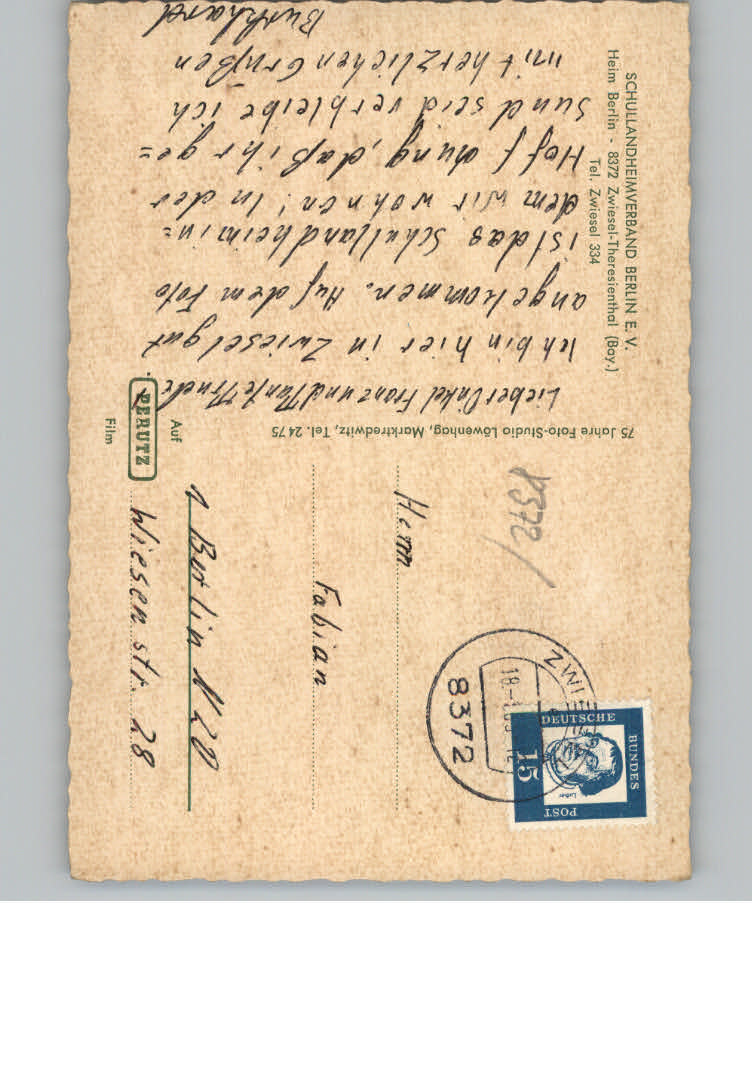 SCHULLANDHEIMVERBAND BERLIN E. V.
Heim Berlin - 8372 Zwiesel-Theresienthal (Bay.)
Tel. Zwiesel 334
Lieber Onkel Franz und Tante Trude
Ich bin hier in Zwiesel gut
angekommen. Auf dem Foto
ist das Schullandheim in=
dem wir wohnen! In der
Hoffnung, daß ihr ge=
sund seid verbleibe ich
mit herzlichen Grüßen
Burkhard
75 Jahre Foto-Studio Löwenhag, Marktredwitz, Tel. 24 75
Auf
PERUTZ
Film
8372/
8372
DEUTSCHE
BUNDES
POST
15
Luther
Herrn
Fabian
1 Berlin N 20
Wiesenstr. 28